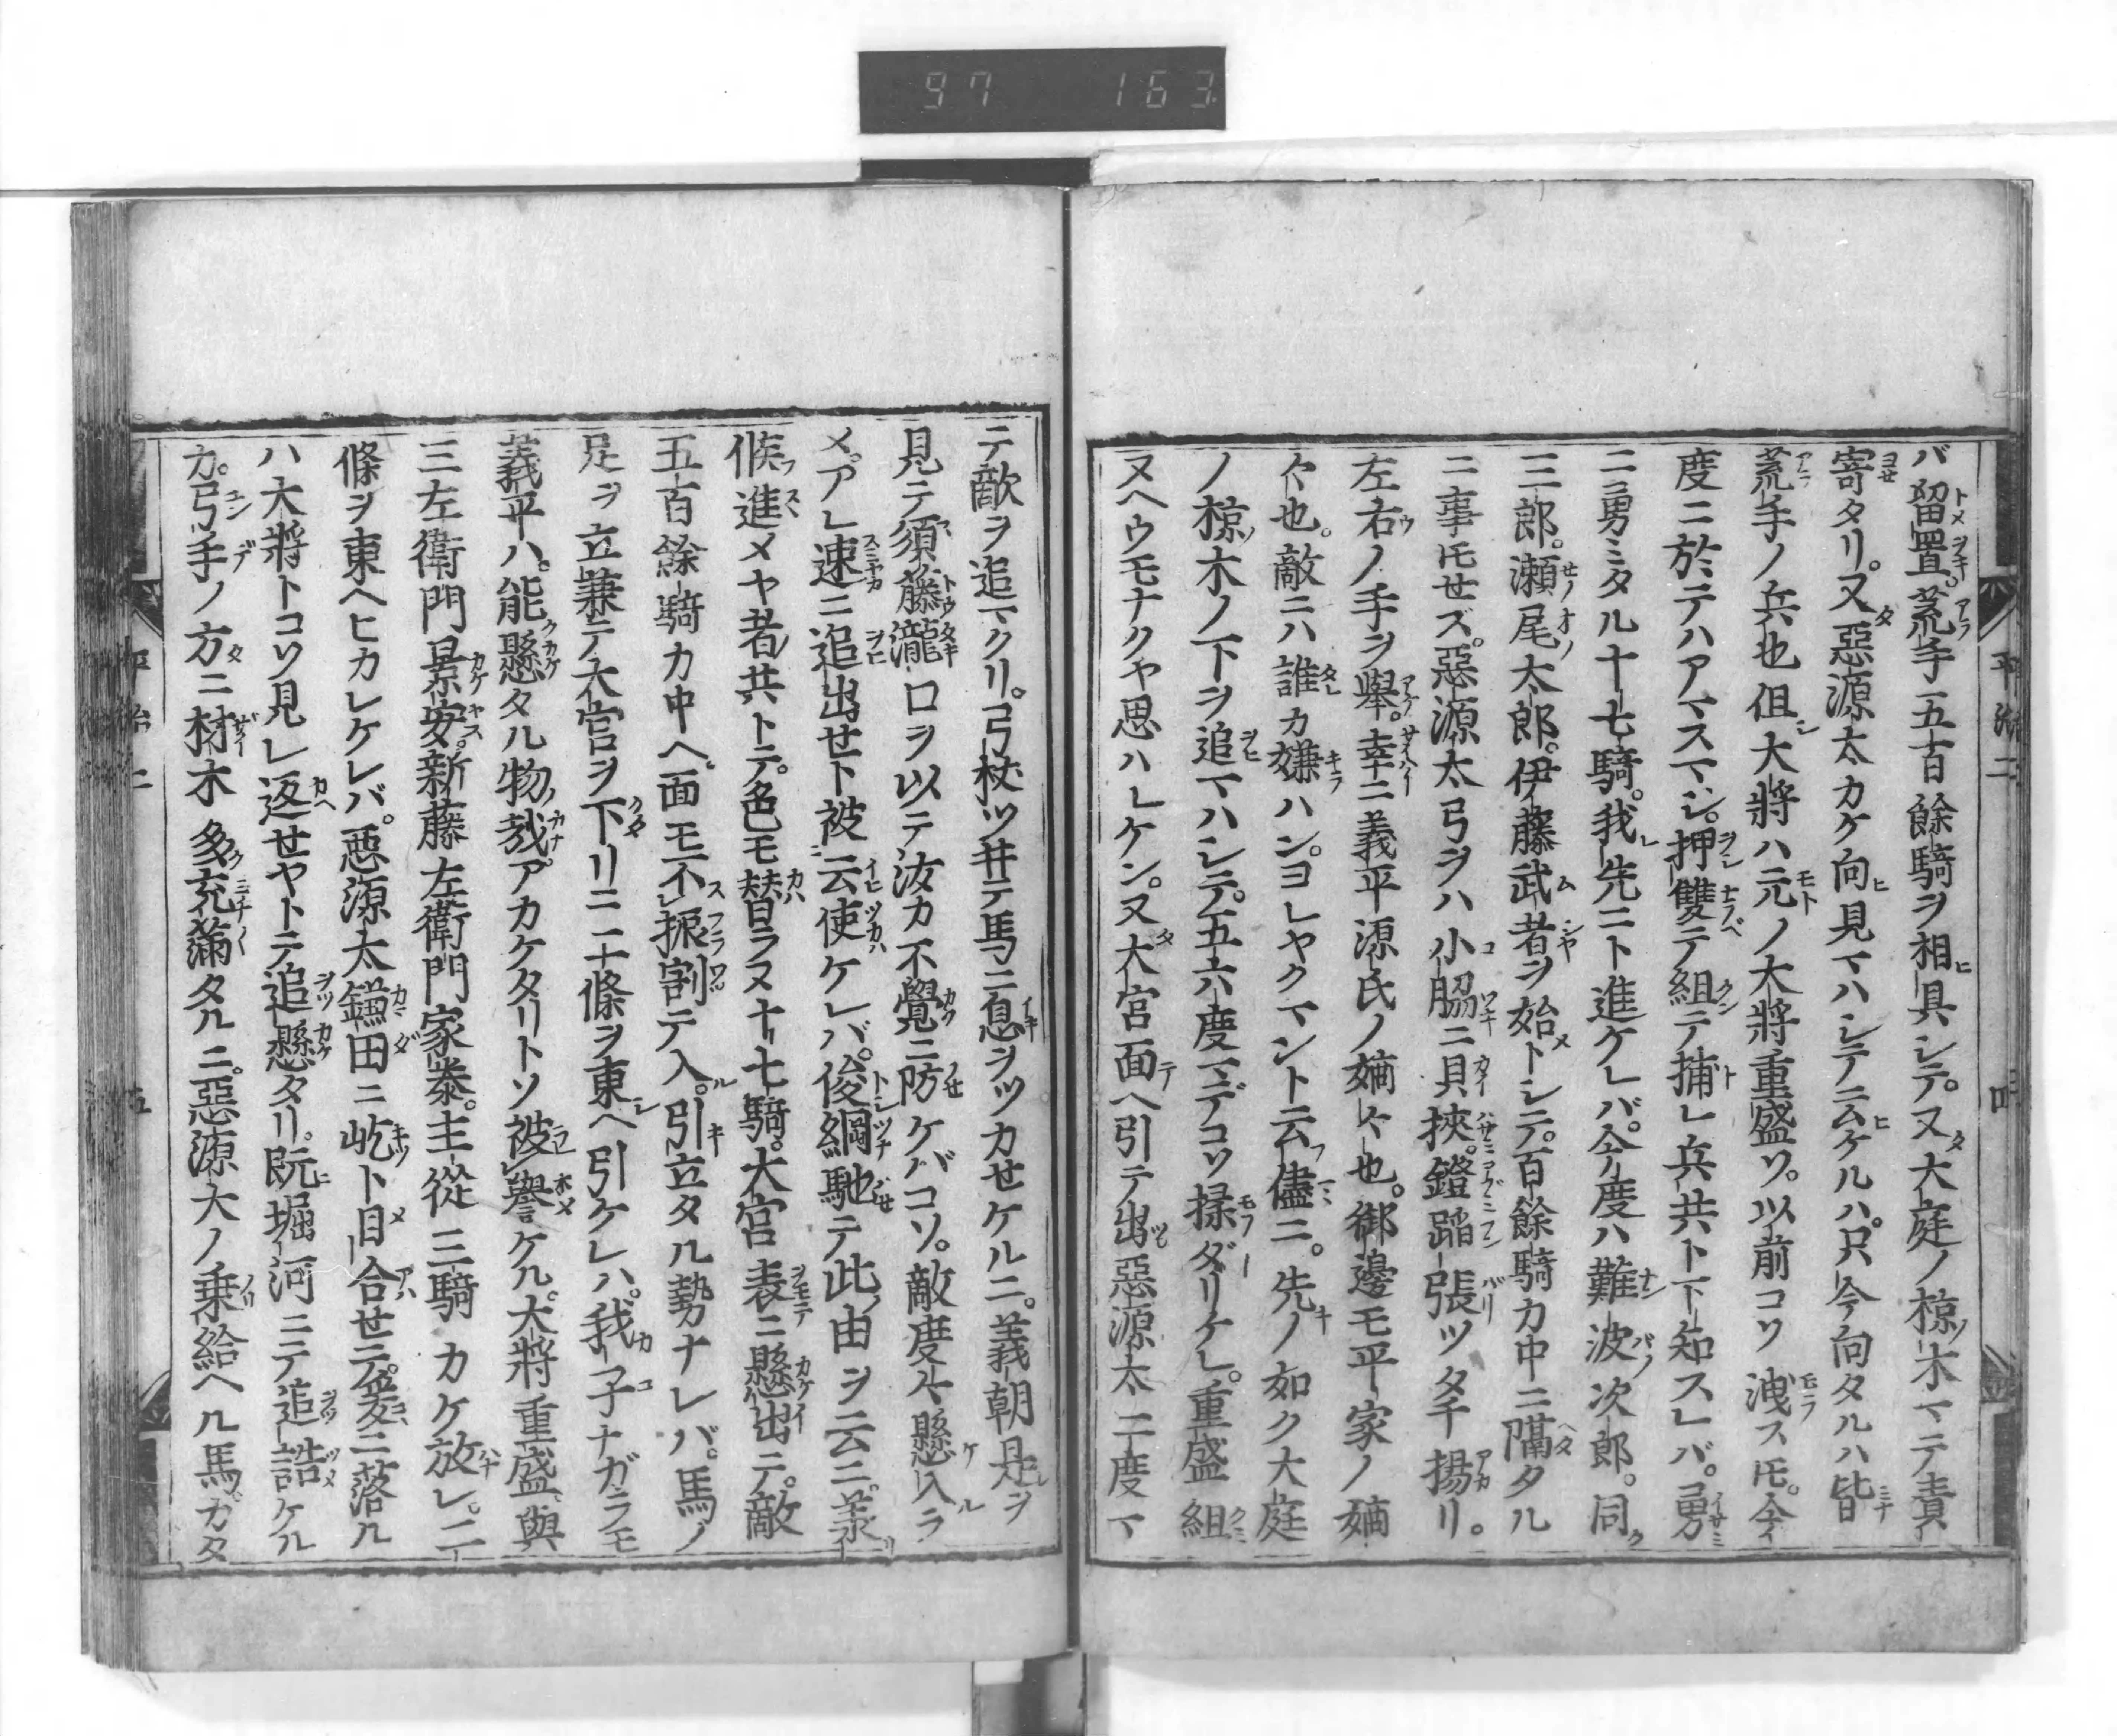 97 163
バ留置。荒手五百餘騎ヲ相具シテ。又大庭ノ椋木マテ責
寄タリ。又惡源太カケ向見マハシテ云ケルハ。只今向タルハ皆
荒手ノ兵也但大將ハ元ノ大將重盛ソ。以前コソ洩スモ。今
度ニ於テハアマスマシ。押雙テ組テ捕レ兵共ト下知スレバ。勇
ニ勇ミタル十七騎。我先ニト進ケレバ。今度ハ難波次郎。同
三郎。瀬尾太郎。伊藤武者ヲ始トシテ。百餘騎カ中ニ隔タル
ニ事トモセズ。惡源太弓ヲハ小脇ニ貝挾。鐙蹈張ツタチ揚リ。
左右ノ手ヲ擧。幸ニ義平源氏ノ嫡々也。御邊モ平家ノ嫡
々也。敵ニハ誰カ嫌ハン。ヨレヤクマント云儘ニ。先ノ如ク大庭
ノ椋木ノ下ヲ追マハシテ。五六度マデコソ揉ダリケレ。重盛組
ヌヘウモナクヤ思ハレケン。又大宮面ヘ引テ出惡源太二度マ
平治二 四
テ敵ヲ追マクリ。弓杖ツ井テ馬ニ息ヲツカセケルニ。義朝是ヲ
見テ須藤瀧口ヲ以テ汝カ不覺ニ防ケバコソ。敵度々懸入ラ
メ。アレ速ニ追出セト被云使ケレバ。俊綱馳テ此由ヲ云ニ。承
候進メヤ者共トテ。色モ替ラヌ十七騎。大宮表ニ懸出テ。敵
五百餘騎カ中ヘ。面モ不振割テ入。引立タル勢ナレバ。馬ノ
足ヲ立兼テ大宮ヲ下リニ二條ヲ東ヘ引ケレハ。我子ナガラモ
義平ハ。能懸タル物哉アカケタリトソ被譽ケル。大將重盛。與
三左衛門景安。新藤左衛門家泰。主從三騎カケ放レ。二
條ヲ東ヘヒカレケレバ。惡源太鎌田ニ屹ト目合セテ。爰ニ落ル
ハ大將トコソ見レ返セヤトテ追懸タリ。既堀河ニテ追詰ケル
カ。弓手ノ方ニ材木多充滿タルニ。惡源太ノ乗給ヘル馬。カタ
平治二 五